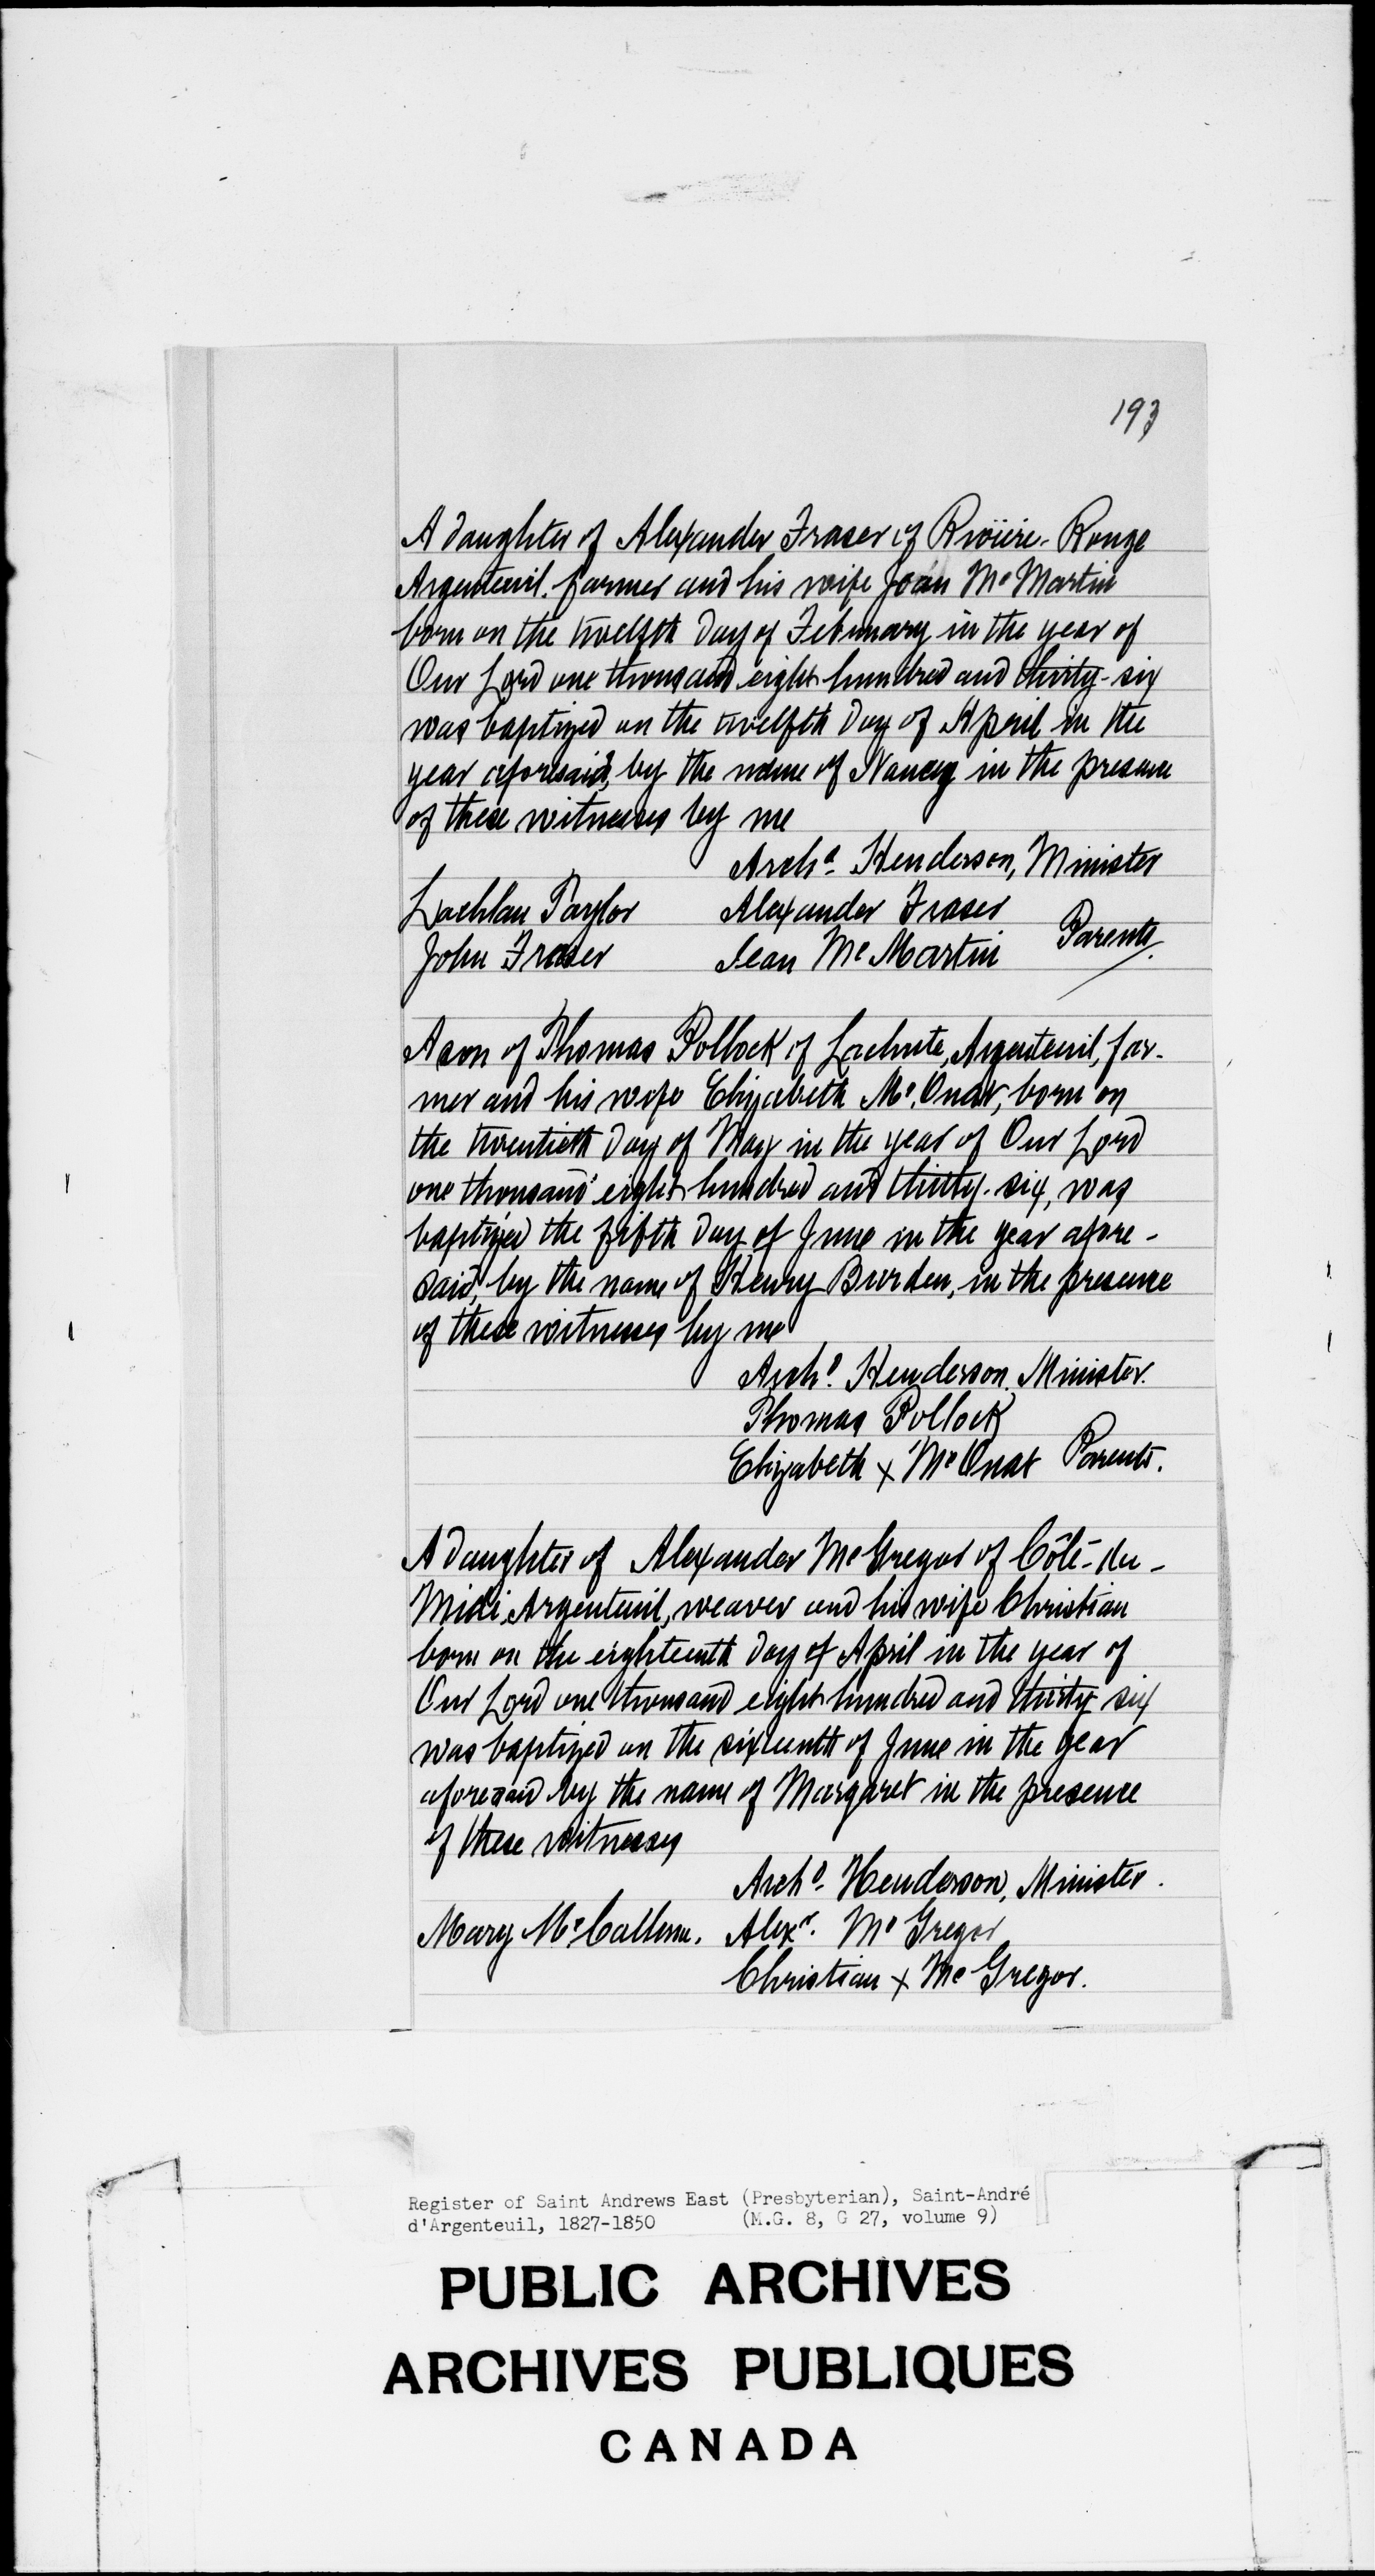 193
A daughter of Alexander Fraser of Rivière-Rouge
Argenteuil. farmer and his wife Joan Mc Martin
born on the twelfth day of February in the year of
Our Lord one thousand eight hundred and thirty-six
was baptized on the twelfth day of April in the
year aforesaid, by the name of Nancy in the presence
of these witnesses by me
Archd. Henderson, Minister
Lachlan Taylor Alexander Fraser
John Fraser Jean Mc Martin Parents.
A son of Thomas Pollock of Lachute, Argenteuil, far-
mer and his wife Elizabeth Mc. Ouat, born on
the twentieth day of May in the year of Our Lord
one thousand eight hundred and thirty-six, was
baptized the fifth day of June in the year afore-
said, by the name of Henry Burden, in the presence
of these witnesses by me
Archd. Henderson. Minister.
Thomas Pollock
Elizabeth x Mc Ouat Parents.
A daughter of Alexander Mc Gregor of Côté-du-
Midi, Argenteuil, weaver and his wife Christian
born on the eighteenth day of April in the year of
Our Lord one thousand eight hundred and thirty six
was baptized on the sixteenth of June in the year
aforesaid by the name of Margaret in the presence
of these witnesses
Archd. Henderson, Minister.
Mary Mc Callum. Alexr. Mc Gregor
Christian x Mc Gregor.
Register of Saint Andrews East (Presbyterian), Saint-André
d'Argenteuil, 1827-1850 (M.G. 8, G 27, volume 9)
PUBLIC ARCHIVES
ARCHIVES PUBLIQUES
CANADA